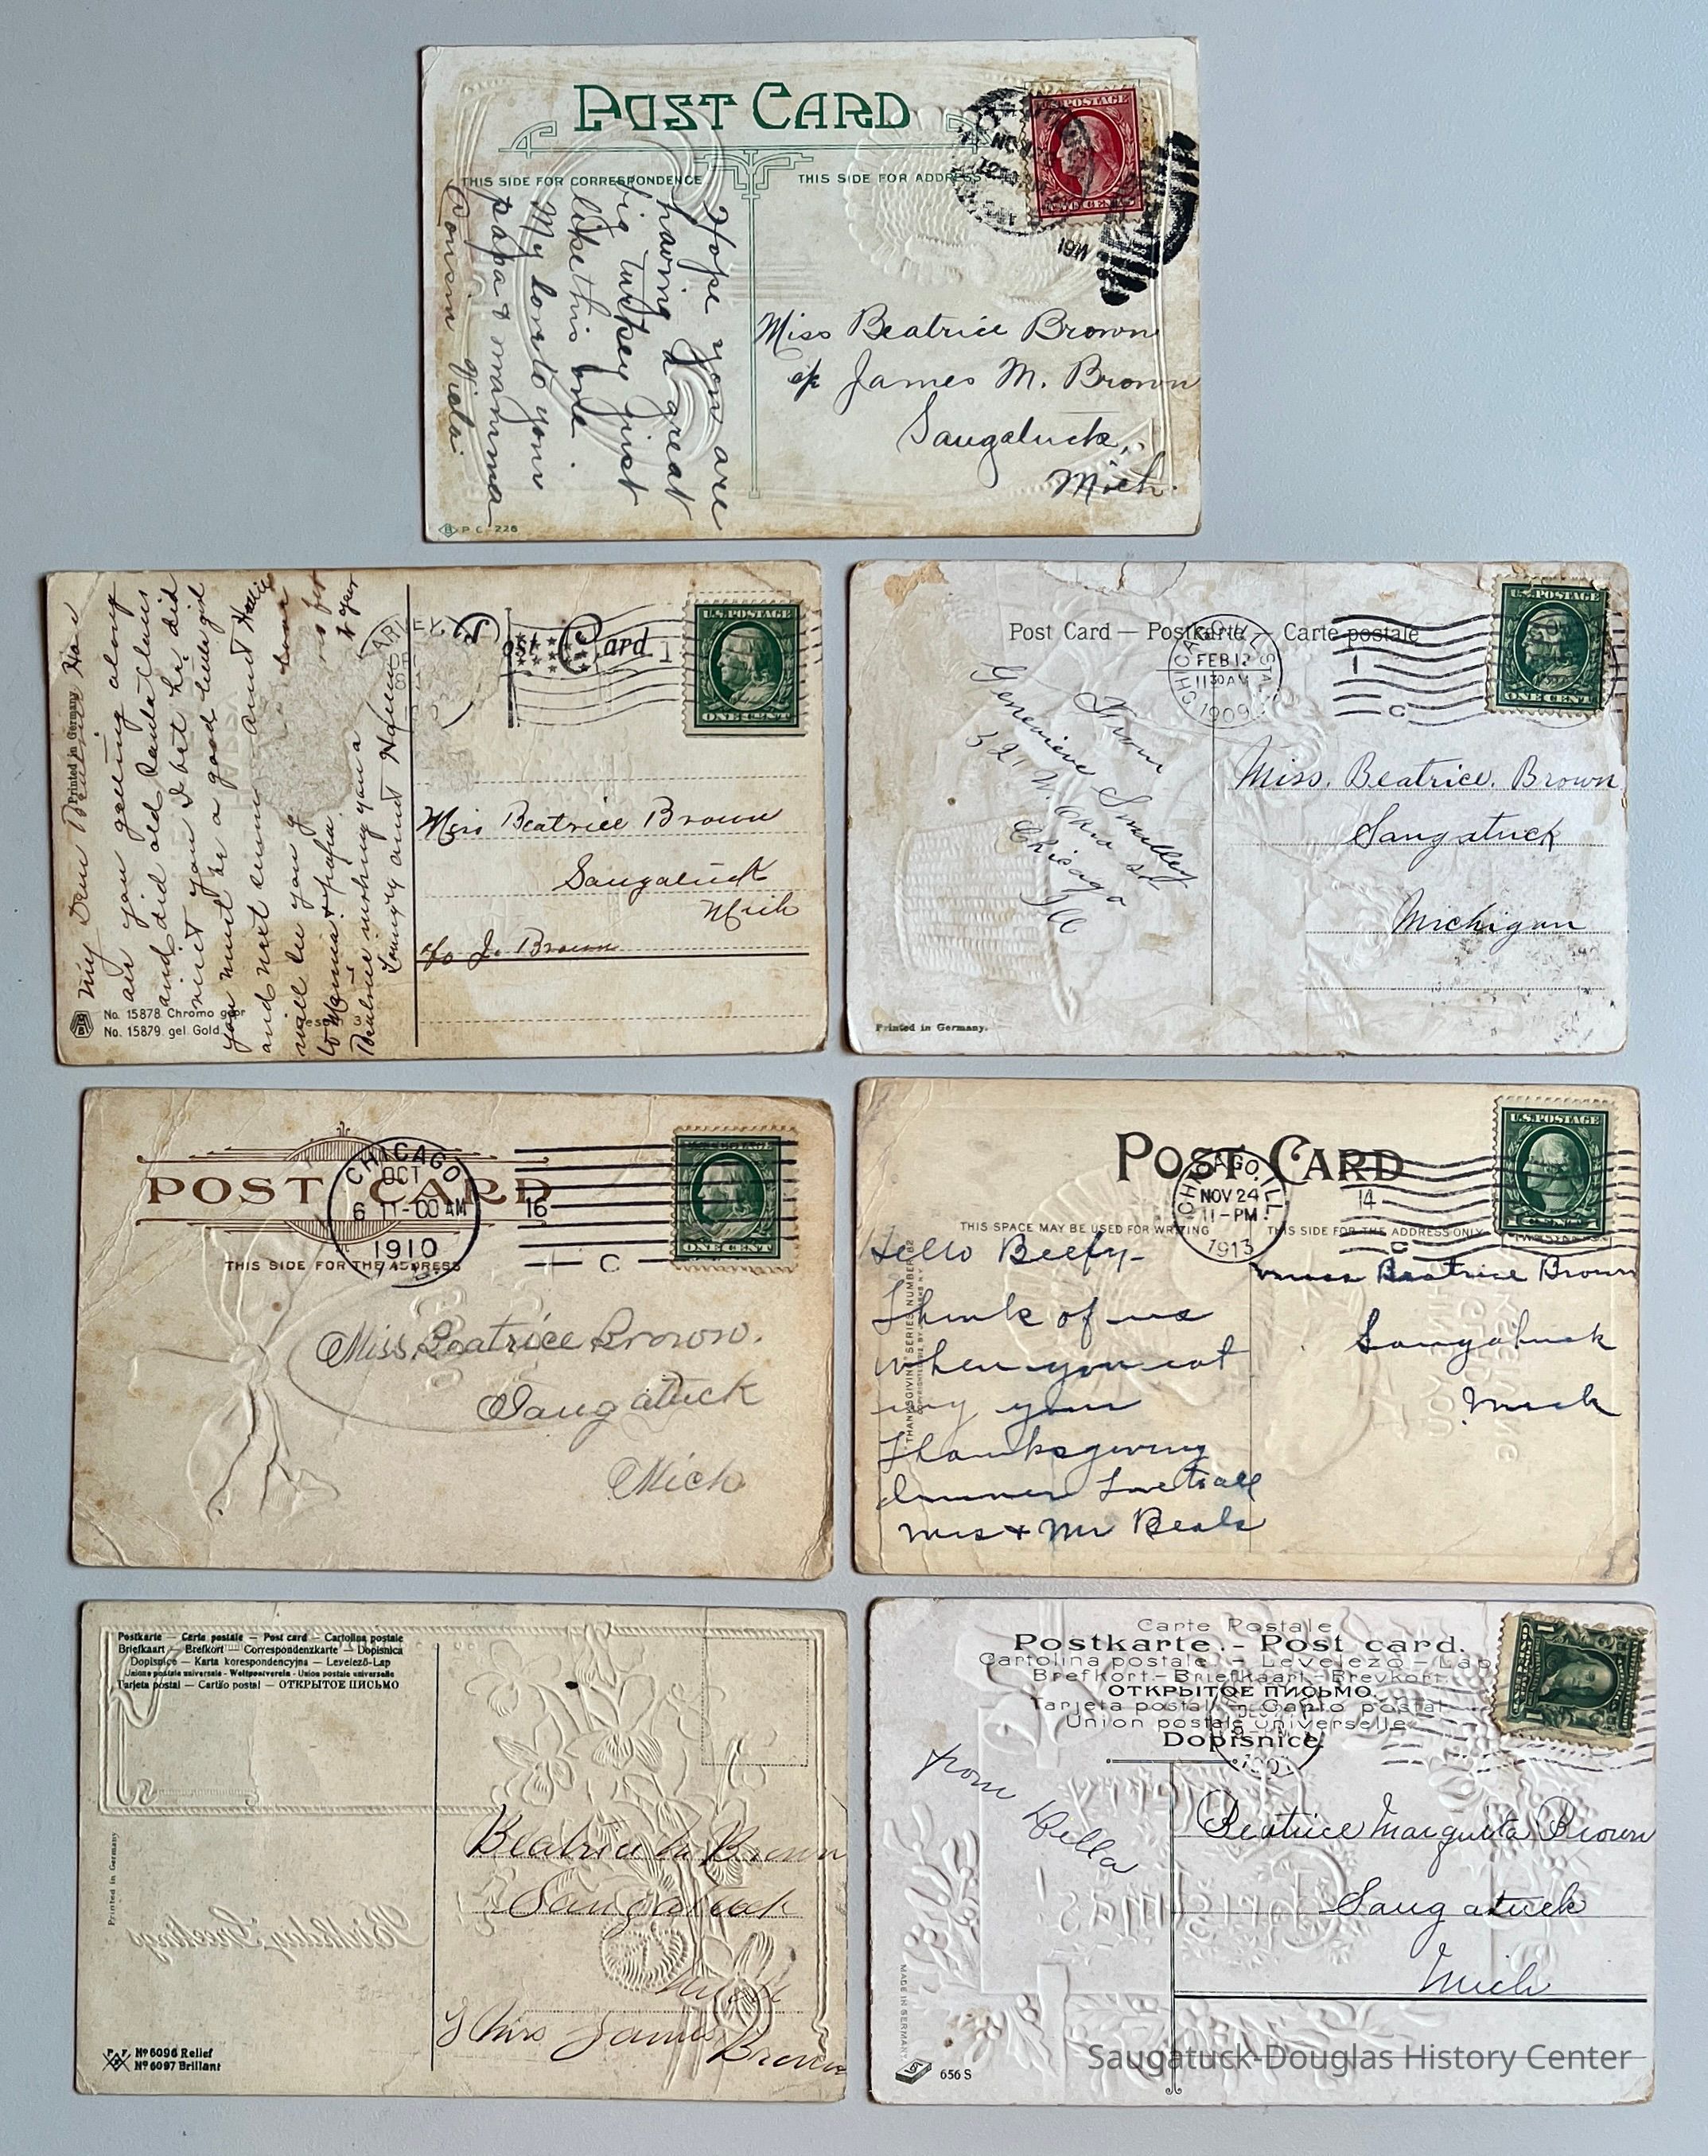 POST CARD
THIS SIDE FOR CORRESPONDENCE
THIS SIDE FOR ADDRESS
U.S. POSTAGE
Hope you are
having a great
big turkey just
like this one.
My love to your
papa & mamma
Cousin Viola
Miss Beatrice Brown
c/o James M. Brown
Saugatuck,
Mich.
B P C 226
Printed in Germany
Post Card
U.S. POSTAGE
ONE CENT
1
are you getting along
and did old Santa Claus
visit you I bet he did
you must be a good little girl
and next summer Aunt Hattie
will be you
to Mamma & papa.
Beatrice wishing you a
Miss Beatrice Brown
Saugatuck
Mich
c/o J. Brown
No. 15878. Chromo
No. 15879. gel. Gold
Post Card — Postkarte — Carte postale
CHICAGO, ILL.
FEB 12
11 30 AM
1909
1
C
U.S. POSTAGE
ONE CENT
From
Genevieve Smalley
521 W. Ohio St.
Chicago
Ill
Miss. Beatrice. Brown
Saugatuck
Michigan
Printed in Germany.
POST CARD
THIS SIDE FOR THE ADDRESS
CHICAGO
OCT
6 11-00 AM
1910
16
C
ONE CENT
Miss Beatrice Brown.
Saugatuck
Mich
POST CARD
THIS SPACE MAY BE USED FOR WRITING
THIS SIDE FOR THE ADDRESS ONLY
CHICAGO, ILL.
NOV 24
11-PM
1913
14
C
U.S. POSTAGE
THANKSGIVING SERIES NUMBER
Hello Beefy-
Think of us
when you eat
your
Thanksgiving
dinner Love to all
Mrs & Mr Beals
Miss Beatrice Brown
Saugatuck
Mich
Postkarte — Carte postale — Post card — Cartolina postale
Briefkaart — Brefkort — Correspondenzkarte — Dopisnica
Dopisnice — Karta korespondencyjna — Levelező-Lap
Unione postale universale - Weltpostverein - Union postale universelle
Tarjeta postal — Cartão postal — ОТКРЫТОЕ ПИСЬМО
Printed in Germany
Birthday Greetings
Beatrice M Brown
Saugatuck
Mich
Mrs James
Brown
No 6096 Relief
No 6097 Brillant
Carte Postale
Postkarte. - Post card.
Cartolina postale. - Levelező - Lap
Brefkort - Briefkaart - Brevkort
ОТКРЫТОЕ ПИСЬМО.
Tarjeta postal
Union postale universelle
Dopisnice
from Della
Beatrice Margueita Brown
Saugatuck
Mich
MADE IN GERMANY
656 S
Saugatuck-Douglas History Center